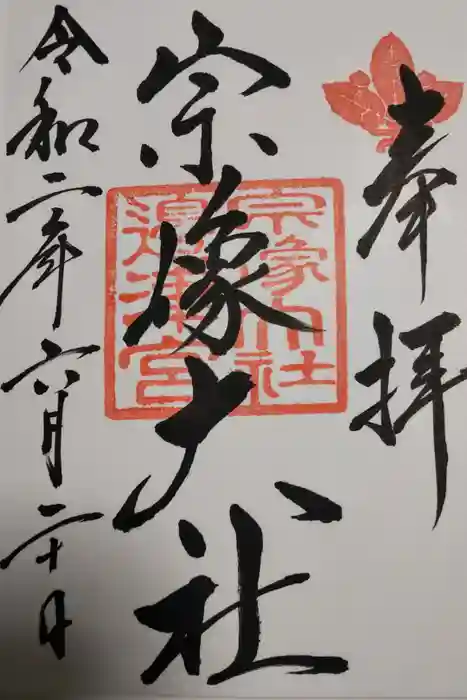 奉拝
宗像大社
宗像大社
邉津宮
令和二年六月二十日